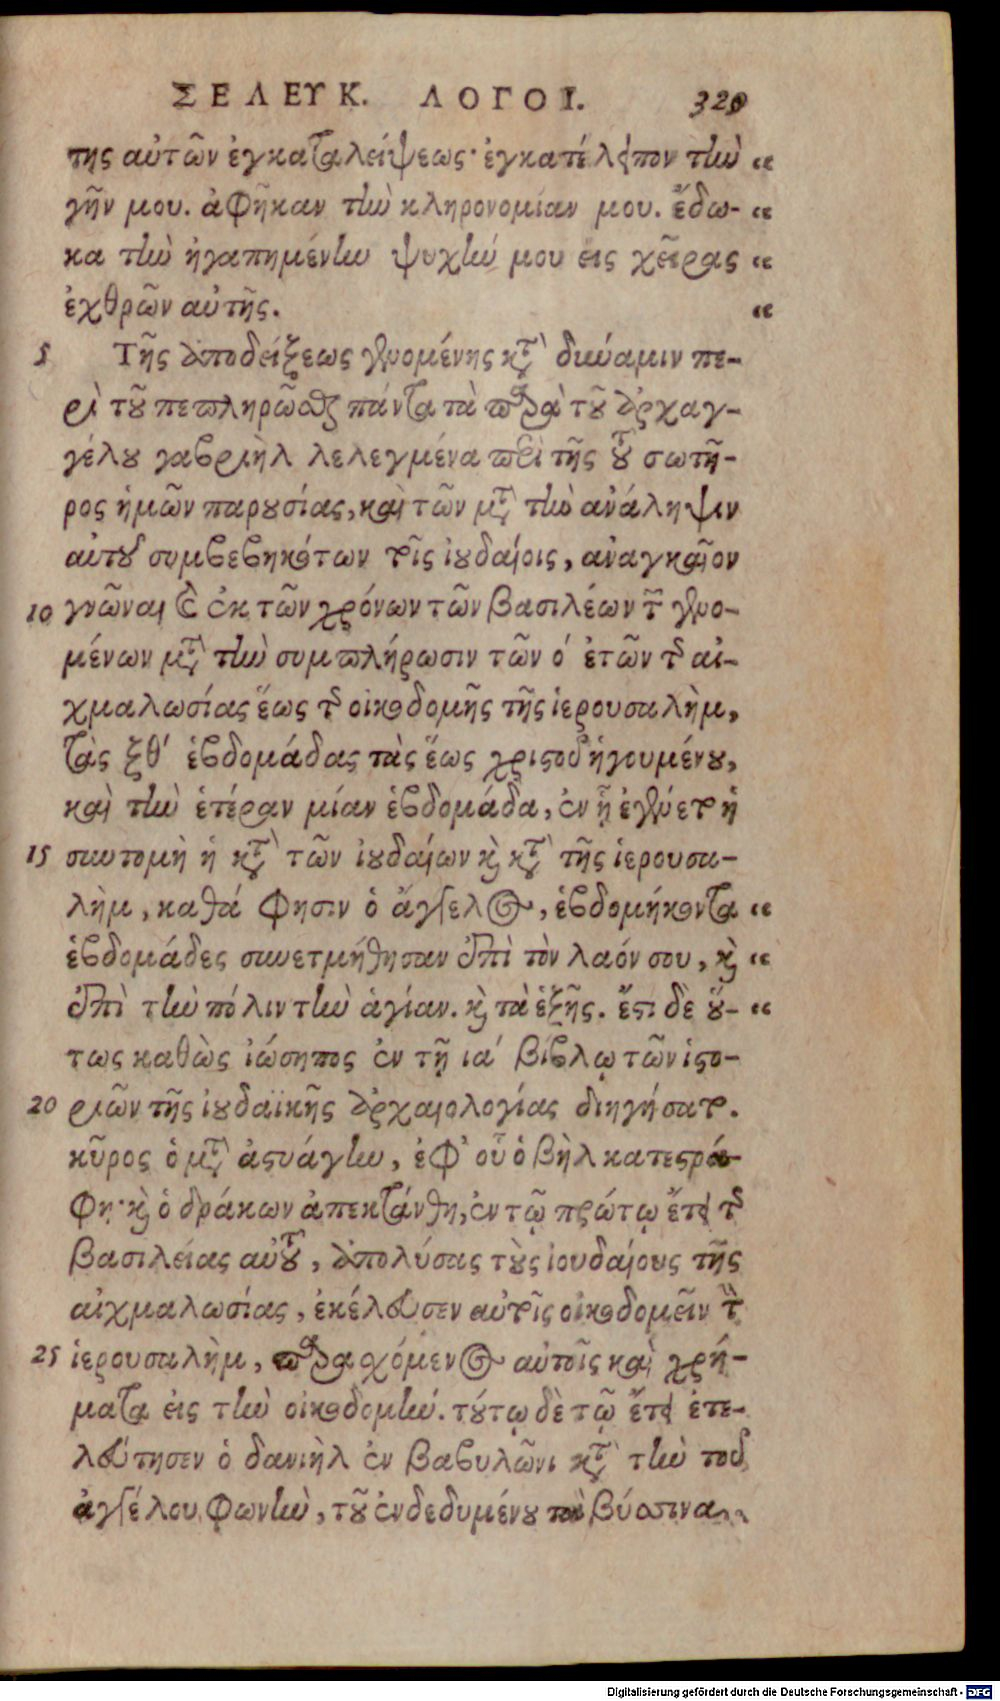 ΣΕΛΕΥΚ. ΛΟΓΟΙ. 329
της αὐτῶν ἐγκαταλείψεως· ἐγκατέλειπον τὴν “
γῆν μου. ἀφῆκαν τὴν κληρονομίαν μου. ἔδω- “
κα τὴν ἠγαπημένην ψυχήν μου εἰς χεῖρας “
ἐχθρῶν αὐτῆς. “
5 Τῆς ἀποδείξεως γενομένης κτ͂ δύναμιν πε-
ρὶ τοῦ πεπληρῶσθαι πάντα τὰ παρὰ τοῦ ἀρχαγ-
γέλου γαβριὴλ λελεγμένα περὶ τῆς τοῦ σωτῆ-
ρος ἡμῶν παρουσίας, καὶ τῶν μτ͂ τὴν ἀνάληψιν
αὐτοῦ συμβεβηκότων τοῖς ἰουδαίοις, ἀναγκαῖον
10 γνῶναι καὶ ἐκ τῶν χρόνων τῶν βασιλέων τῶν γενο-
μένων μτ͂ τὴν συμπλήρωσιν τῶν ό ἐτῶν τῆς αἰ-
χμαλωσίας ἕως τῆς οἰκοδομῆς τῆς ἱερουσαλὴμ,
τὰς ξθ΄ ἑβδομάδας τὰς ἕως χριστοῦ ἡγουμένου,
καὶ τὴν ἑτέραν μίαν ἑβδομάδα, ἐν ᾗ ἐγένετο ἡ
15 συντομὴ ἡ κτ͂ τῶν ἰουδαίων κὶ κτ͂ τῆς ἱερουσα-
λὴμ, καθά φησιν ὁ ἄγγελος, ἑβδομήκοντα “
ἑβδομάδες συνετμήθησαν ἐπὶ τὸν λαόν σου, κὶ “
ἐπὶ τὴν πόλιν τὴν ἁγίαν. κὶ τὰ ἑξῆς. ἔστι δὲ οὕ- “
τως καθὼς ἰώσηπος ἐν τῇ ια΄ βίβλῳ τῶν ἱστο-
20 ριῶν τῆς ἰουδαϊκῆς ἀρχαιολογίας διηγήσατο.
κῦρος ὁ μτ͂ ἀστυάγην, ἐφ’ οὗ ὁ βὴλ κατεστρά-
φη· κὶ ὁ δράκων ἀπεκτάνθη, ἐν τῷ πρώτῳ ἔτει τῆς
βασιλείας αὐτοῦ, ἀπολύσας τοὺς ἰουδαίους τῆς
αἰχμαλωσίας, ἐκέλευσεν αὐτοῖς οἰκοδομεῖν τὴν
25 ἱερουσαλὴμ, παραχόμενος αὐτοῖς καὶ χρή-
ματα εἰς τὴν οἰκοδομήν. τούτῳ δὲ τῷ ἔτει ἐτε-
λεύτησεν ὁ δανιὴλ ἐν βαβυλῶνι κτ͂ τὴν τοῦ
ἀγγέλου φωνὴν, τοῦ ἐνδεδυμένου τὰ βύσσινα,
Digitalisierung gefördert durch die Deutsche Forschungsgemeinschaft - DFG